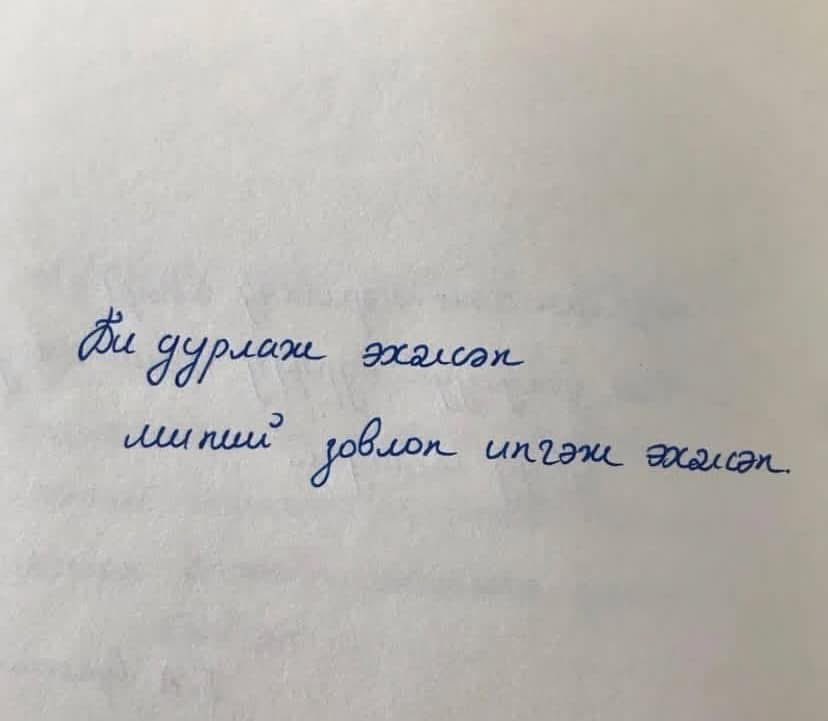 Би дурлаж эхэлсэн
миний зовлон ингэж эхэлсэн.